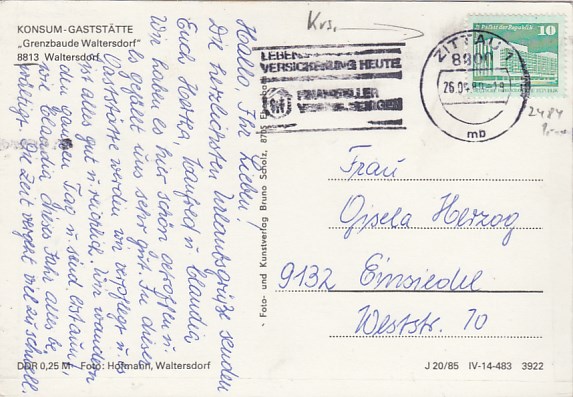 KONSUM-GASTSTÄTTE
„Grenzbaude Waltersdorf"
8813 Waltersdorf
Krs.
VERSICHERUNG HEUTE
FINANZIELLER
ZITTAU 1
8800
mb
Palast der Republik
10
2484
Hallo, Ihr Lieben!
Die herzlichsten Urlaubsgrüße senden
Euch Manfred u. Claudia
Wir haben es hier schön getroffen u.
es gefällt uns sehr gut. In dieser
Gaststätte werden wir verpflegt u. es
ist alles gut u. reichlich. Wir wandern
den ganzen Tag u. sind erstaunt,
wie Claudia dieses Jahr alles be-
wältigt. Die Zeit vergeht viel zu schnell.
Foto- und Kunstverlag Bruno Scholz, 8705
Frau
Gisela Herzog
9132 Einsiedel
Weststr. 70
DDR 0,25 M Foto: Hofmann, Waltersdorf
J 20/85 IV-14-483 3922